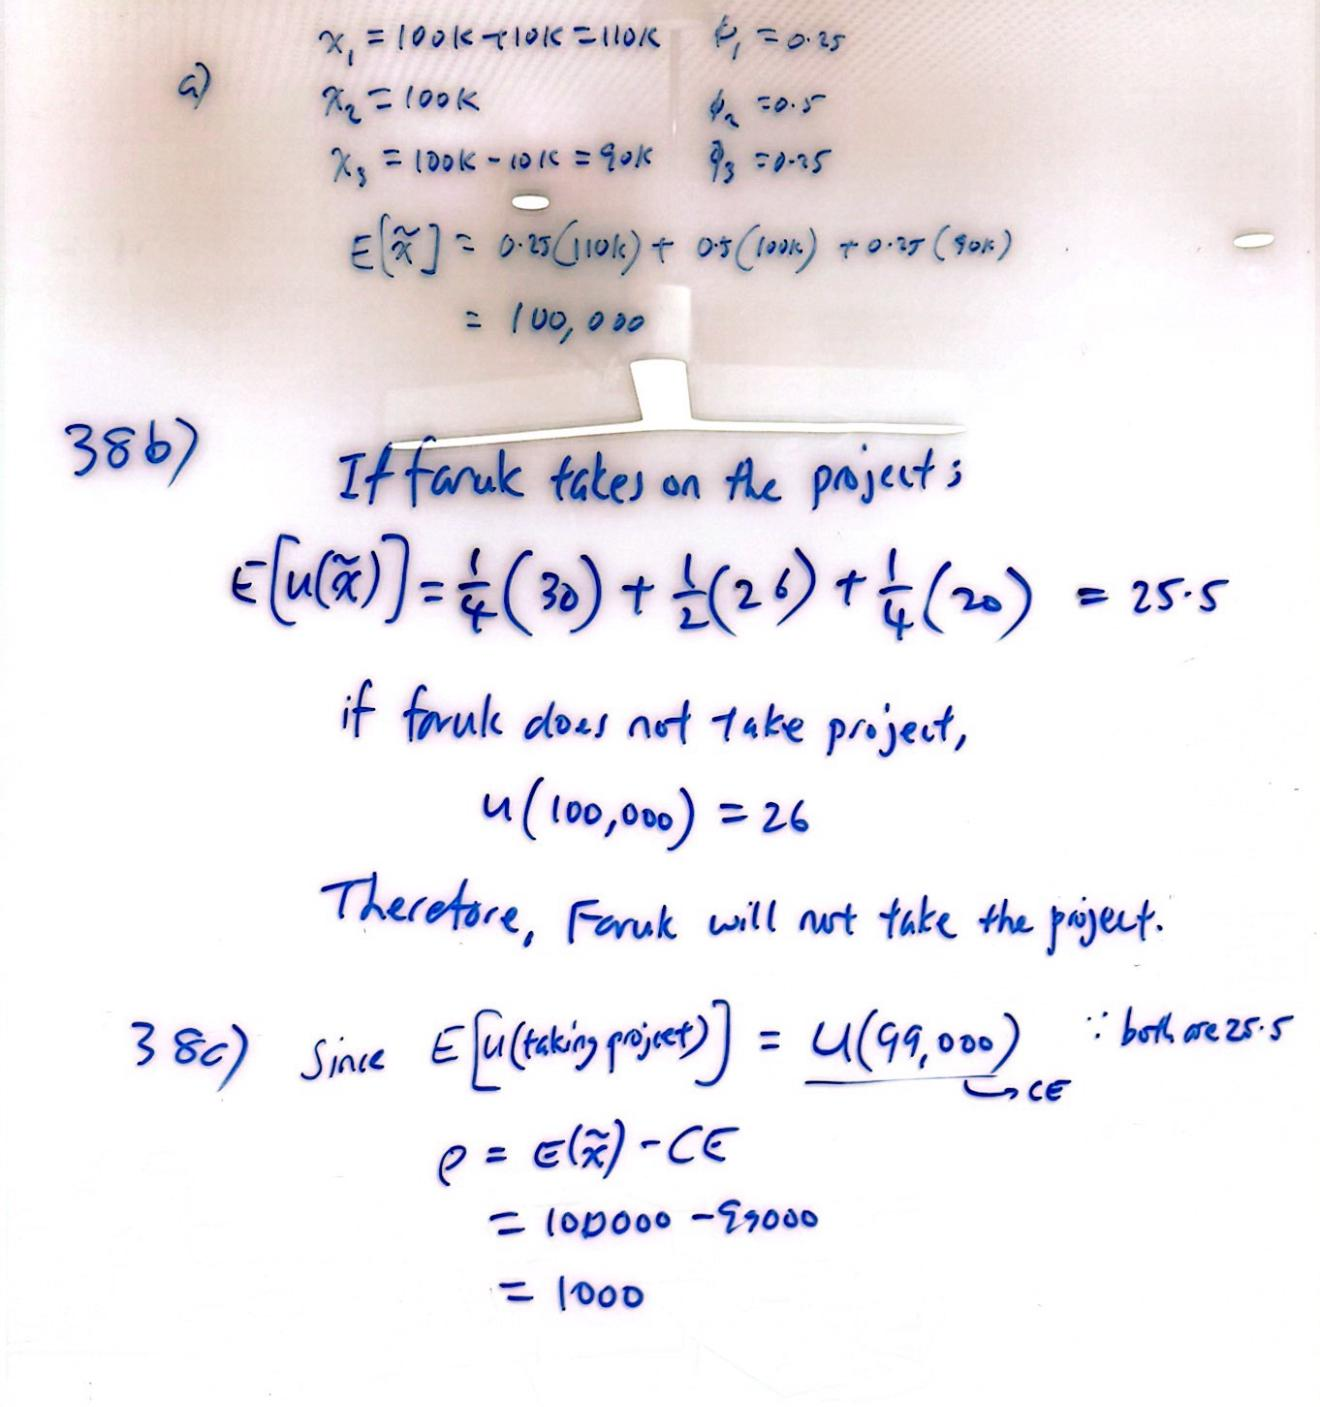 x₁ = 100K+10K=110K p₁ = 0.25
a) x₂ = 100K p₂ = 0.5
x₃ = 100K - 10K = 90K p₃ = 0.25
E[x̃] = 0.25(110K) + 0.5(100K) + 0.25(90K)
= 100,000
38b)
If faruk takes on the project;
E[u(x̃)] = 1/4(30) + 1/2(26) + 1/4(20) = 25.5
if faruk does not take project,
u(100,000) = 26
Therefore, Faruk will not take the project.
38c) Since E[u(taking project)] = U(99,000) ∵ both are 25.5
↪ CE
ρ = E(x̃) - CE
= 100000 - 99000
= 1000